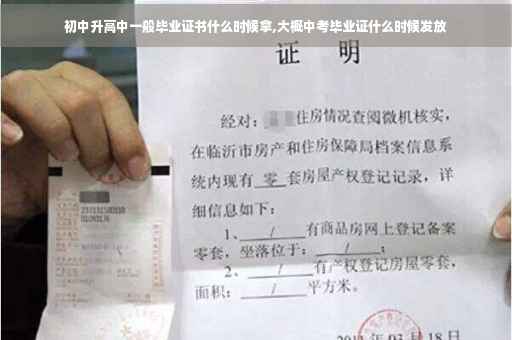 初中升高中一般毕业证书什么时候拿,大概中考毕业证什么时候发放
证 明
经对: 住房情况查阅微机核实,
在临沂市房产和住房保障局档案信息系
统内现有 零 套房屋产权登记记录, 详
细信息如下:
1、 / 有商品房网上登记备案
零套, 坐落位于: / ;
2、 / 有产权登记房屋零套,
面积: / 平方米。
03 月 18 日